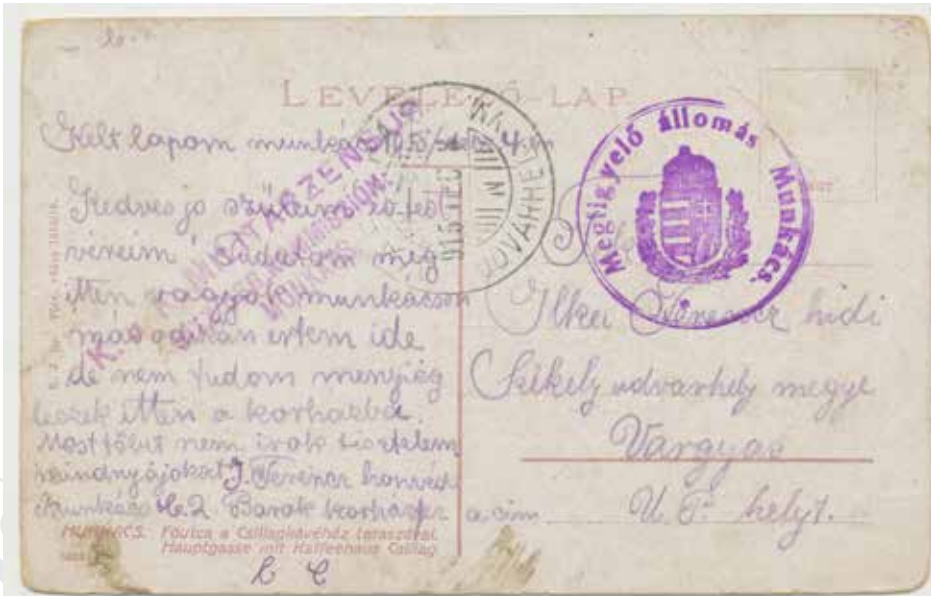 LEVELEZŐ-LAP
Kelt lapom munkács 4.én
Kedves jo szüleim és test
véreim Tudatom meg
itten vagyok munkácson
másodikán értem ide
de nem tudom menyiég
leszek itten a korházba.
Most több nem irok tisztelem
mindnyájokat J. Ferencz honvéd
Munkács 2 Barak korház a cim
MUNKÁCS. Főutca a Csillagkávéház teraszával.
Hauptgasse mit Kaffeehaus Csillag
K. MILITÄRZENSUR
MUNKÁCS
915 DEC
UDVARHELY
Megfigyelő állomás Munkács.
Ilkei Ferencz hidi
Székely udvarhely megye
Vargyas
U. P. helyt.